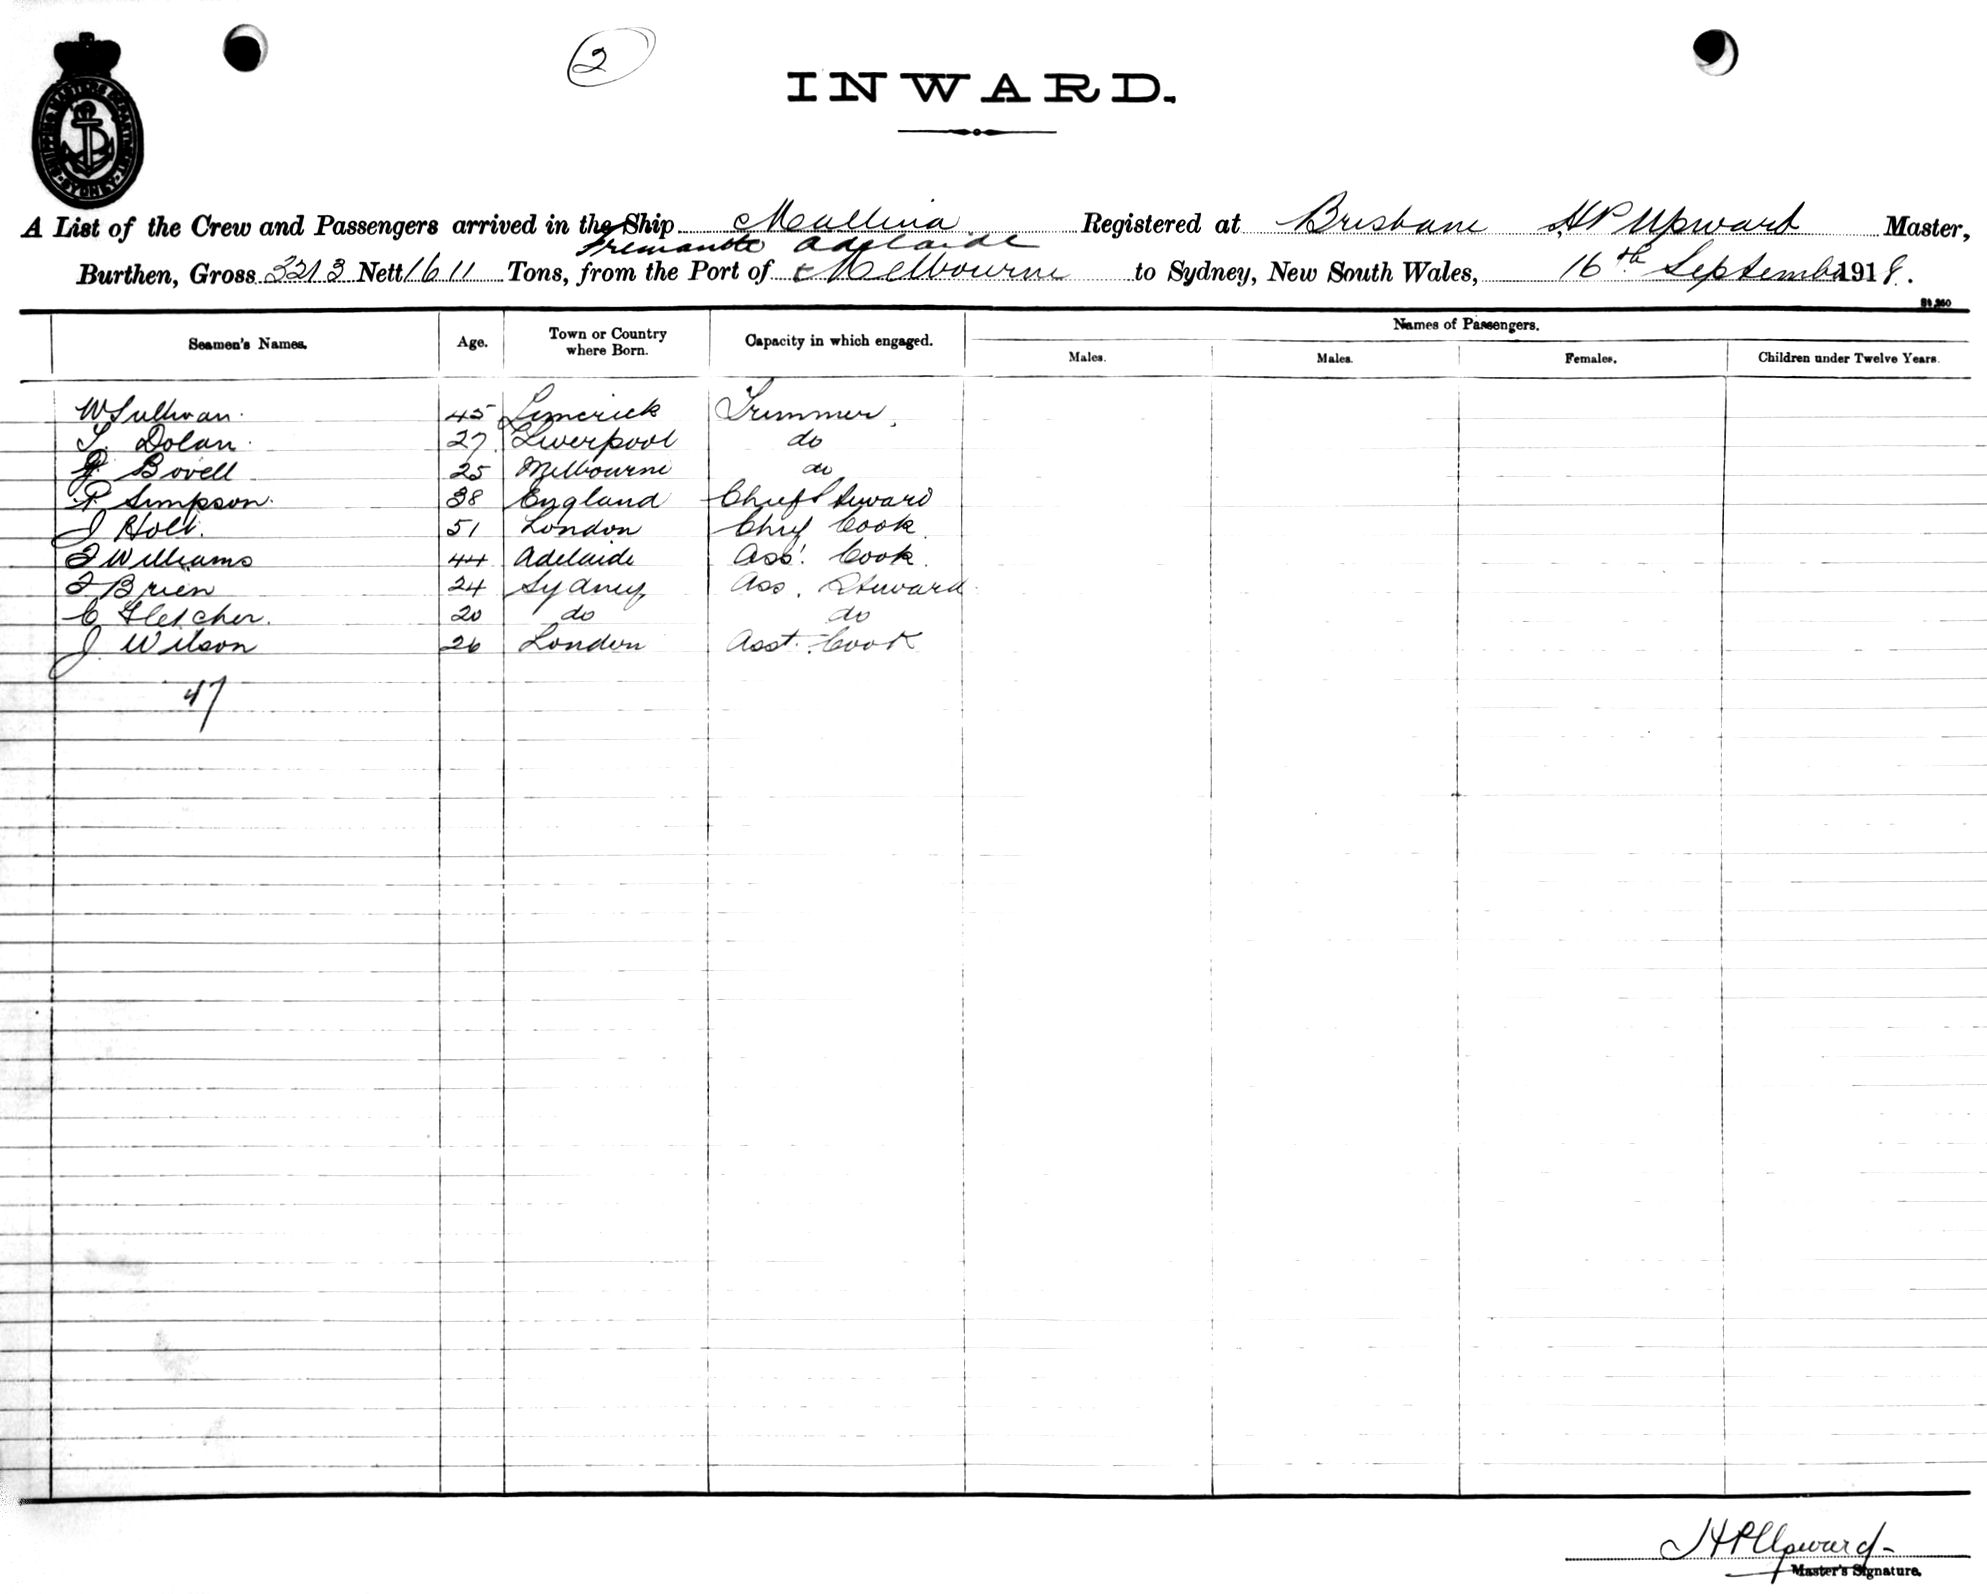 2
INWARD.
SHIPPING MASTERS DEPARTMENT SYDNEY
A List of the Crew and Passengers arrived in the Ship Mallina Registered at Brisbane H P Upward Master,
Fremantle Adelaide
Burthen, Gross 3213 Nett 1611 Tons, from the Port of & Melbourne to Sydney, New South Wales, 16th September 1918.
Names of Passengers.
Seamen's Names. Age. Town or Country where Born. Capacity in which engaged. Males. Males. Females. Children under Twelve Years.
W Sullivan. 45 Limerick Trimmer
T. Dolan. 27 Liverpool do
Bovell 25 Melbourne do
P Simpson. 38 England Chief Steward
J Holt. 51 London Chief Cook
J Williams 44 Adelaide Ass! Cook.
J Brien 24 Sydney Ass. Steward
C Fletcher. 20 do do
J Wilson 26 London Asst. Cook
47
H P Upward
Master's Signature.